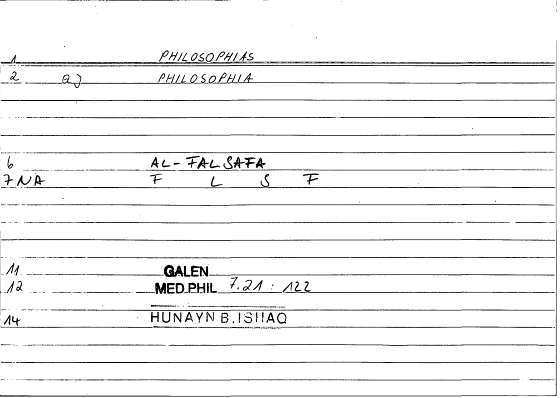 1 PHILOSOPHIAS
2 a) PHILOSOPHIA
6 AL-FALSAFA
7 NA F L S F
11 GALEN
12 MED.PHIL 7.21 : 122
14 HUNAYN B.ISHAQ